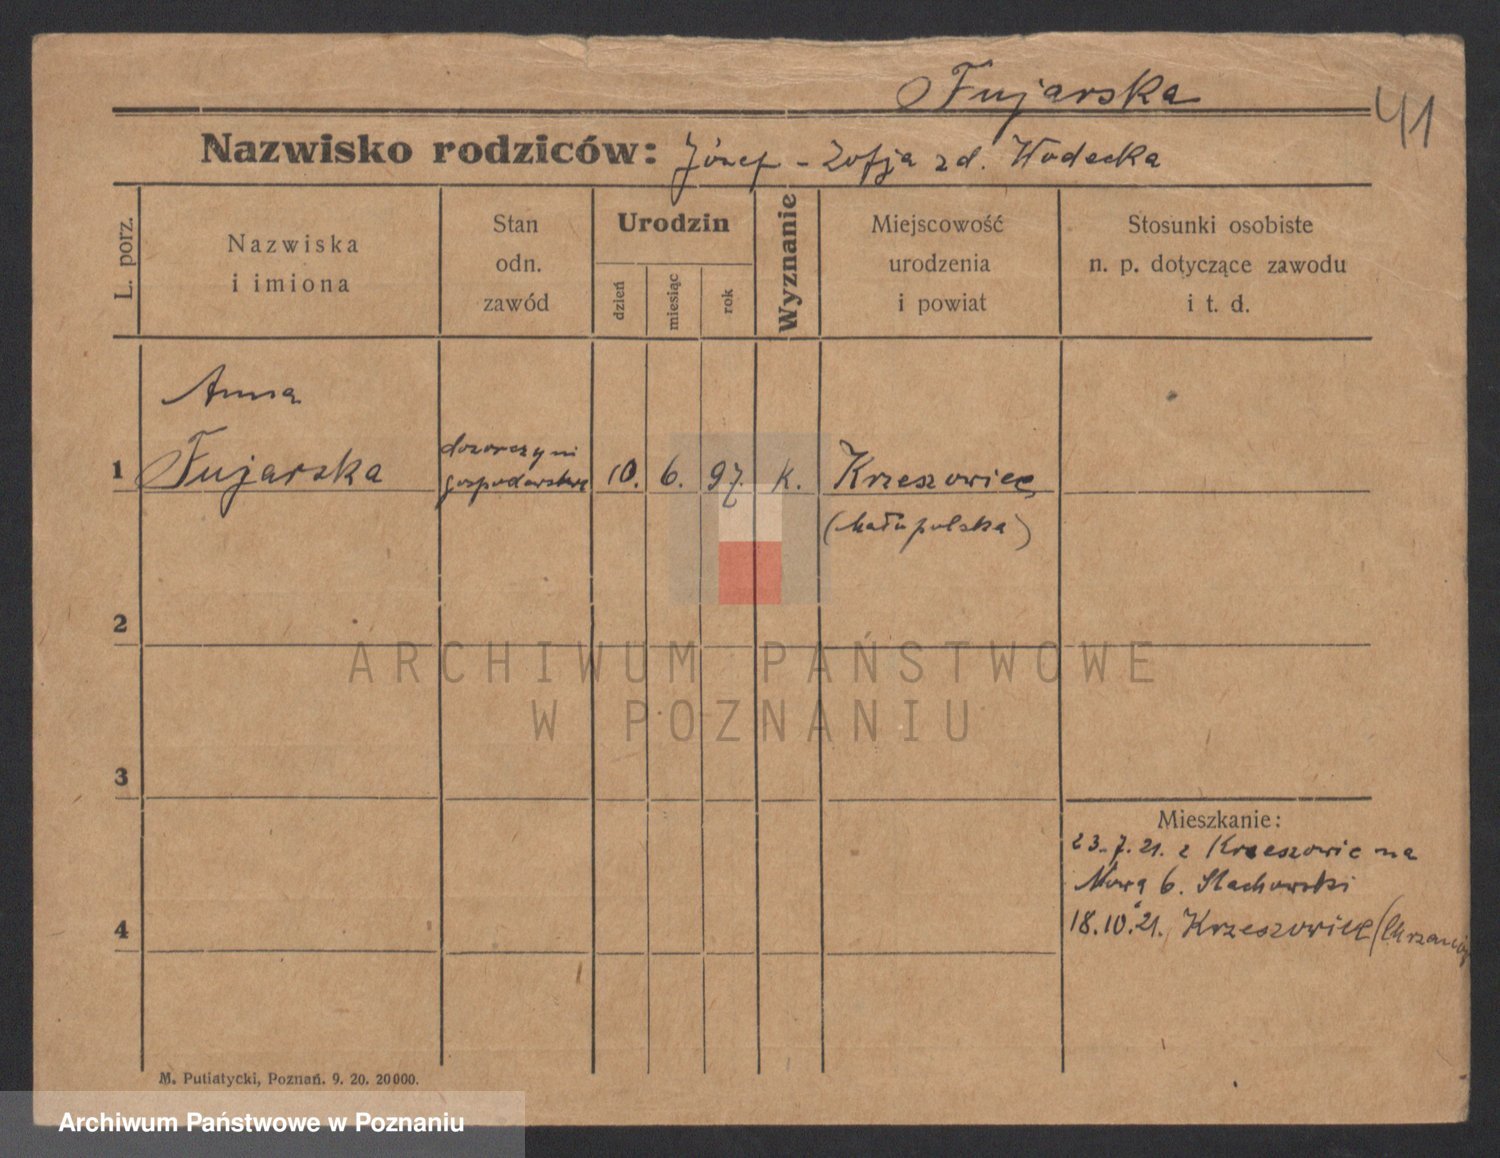 Fujarska
41
Nazwisko rodziców: Józef - Zofja zd. Włodecka
L. porz.
Nazwiska
i imiona
Stan
odn.
zawód
Urodzin
dzień
miesiąc
rok
Wyznanie
Miejscowość
urodzenia
i powiat
Stosunki osobiste
n. p. dotyczące zawodu
i t. d.
Anna
1 Fujarska dozorczyni 10. 6. 97. k. Krzeszowice
gospodarstwa
(Małopolska)
2
ARCHIWUM PAŃSTWOWE
W POZNANIU
3
Mieszkanie:
23.7.21. z Krzeszowic na
Nową 6. Stachowski
4
18.10.21. Krzeszowice
M. Putiatycki, Poznań. 9. 20. 20000.
Archiwum Państwowe w Poznaniu